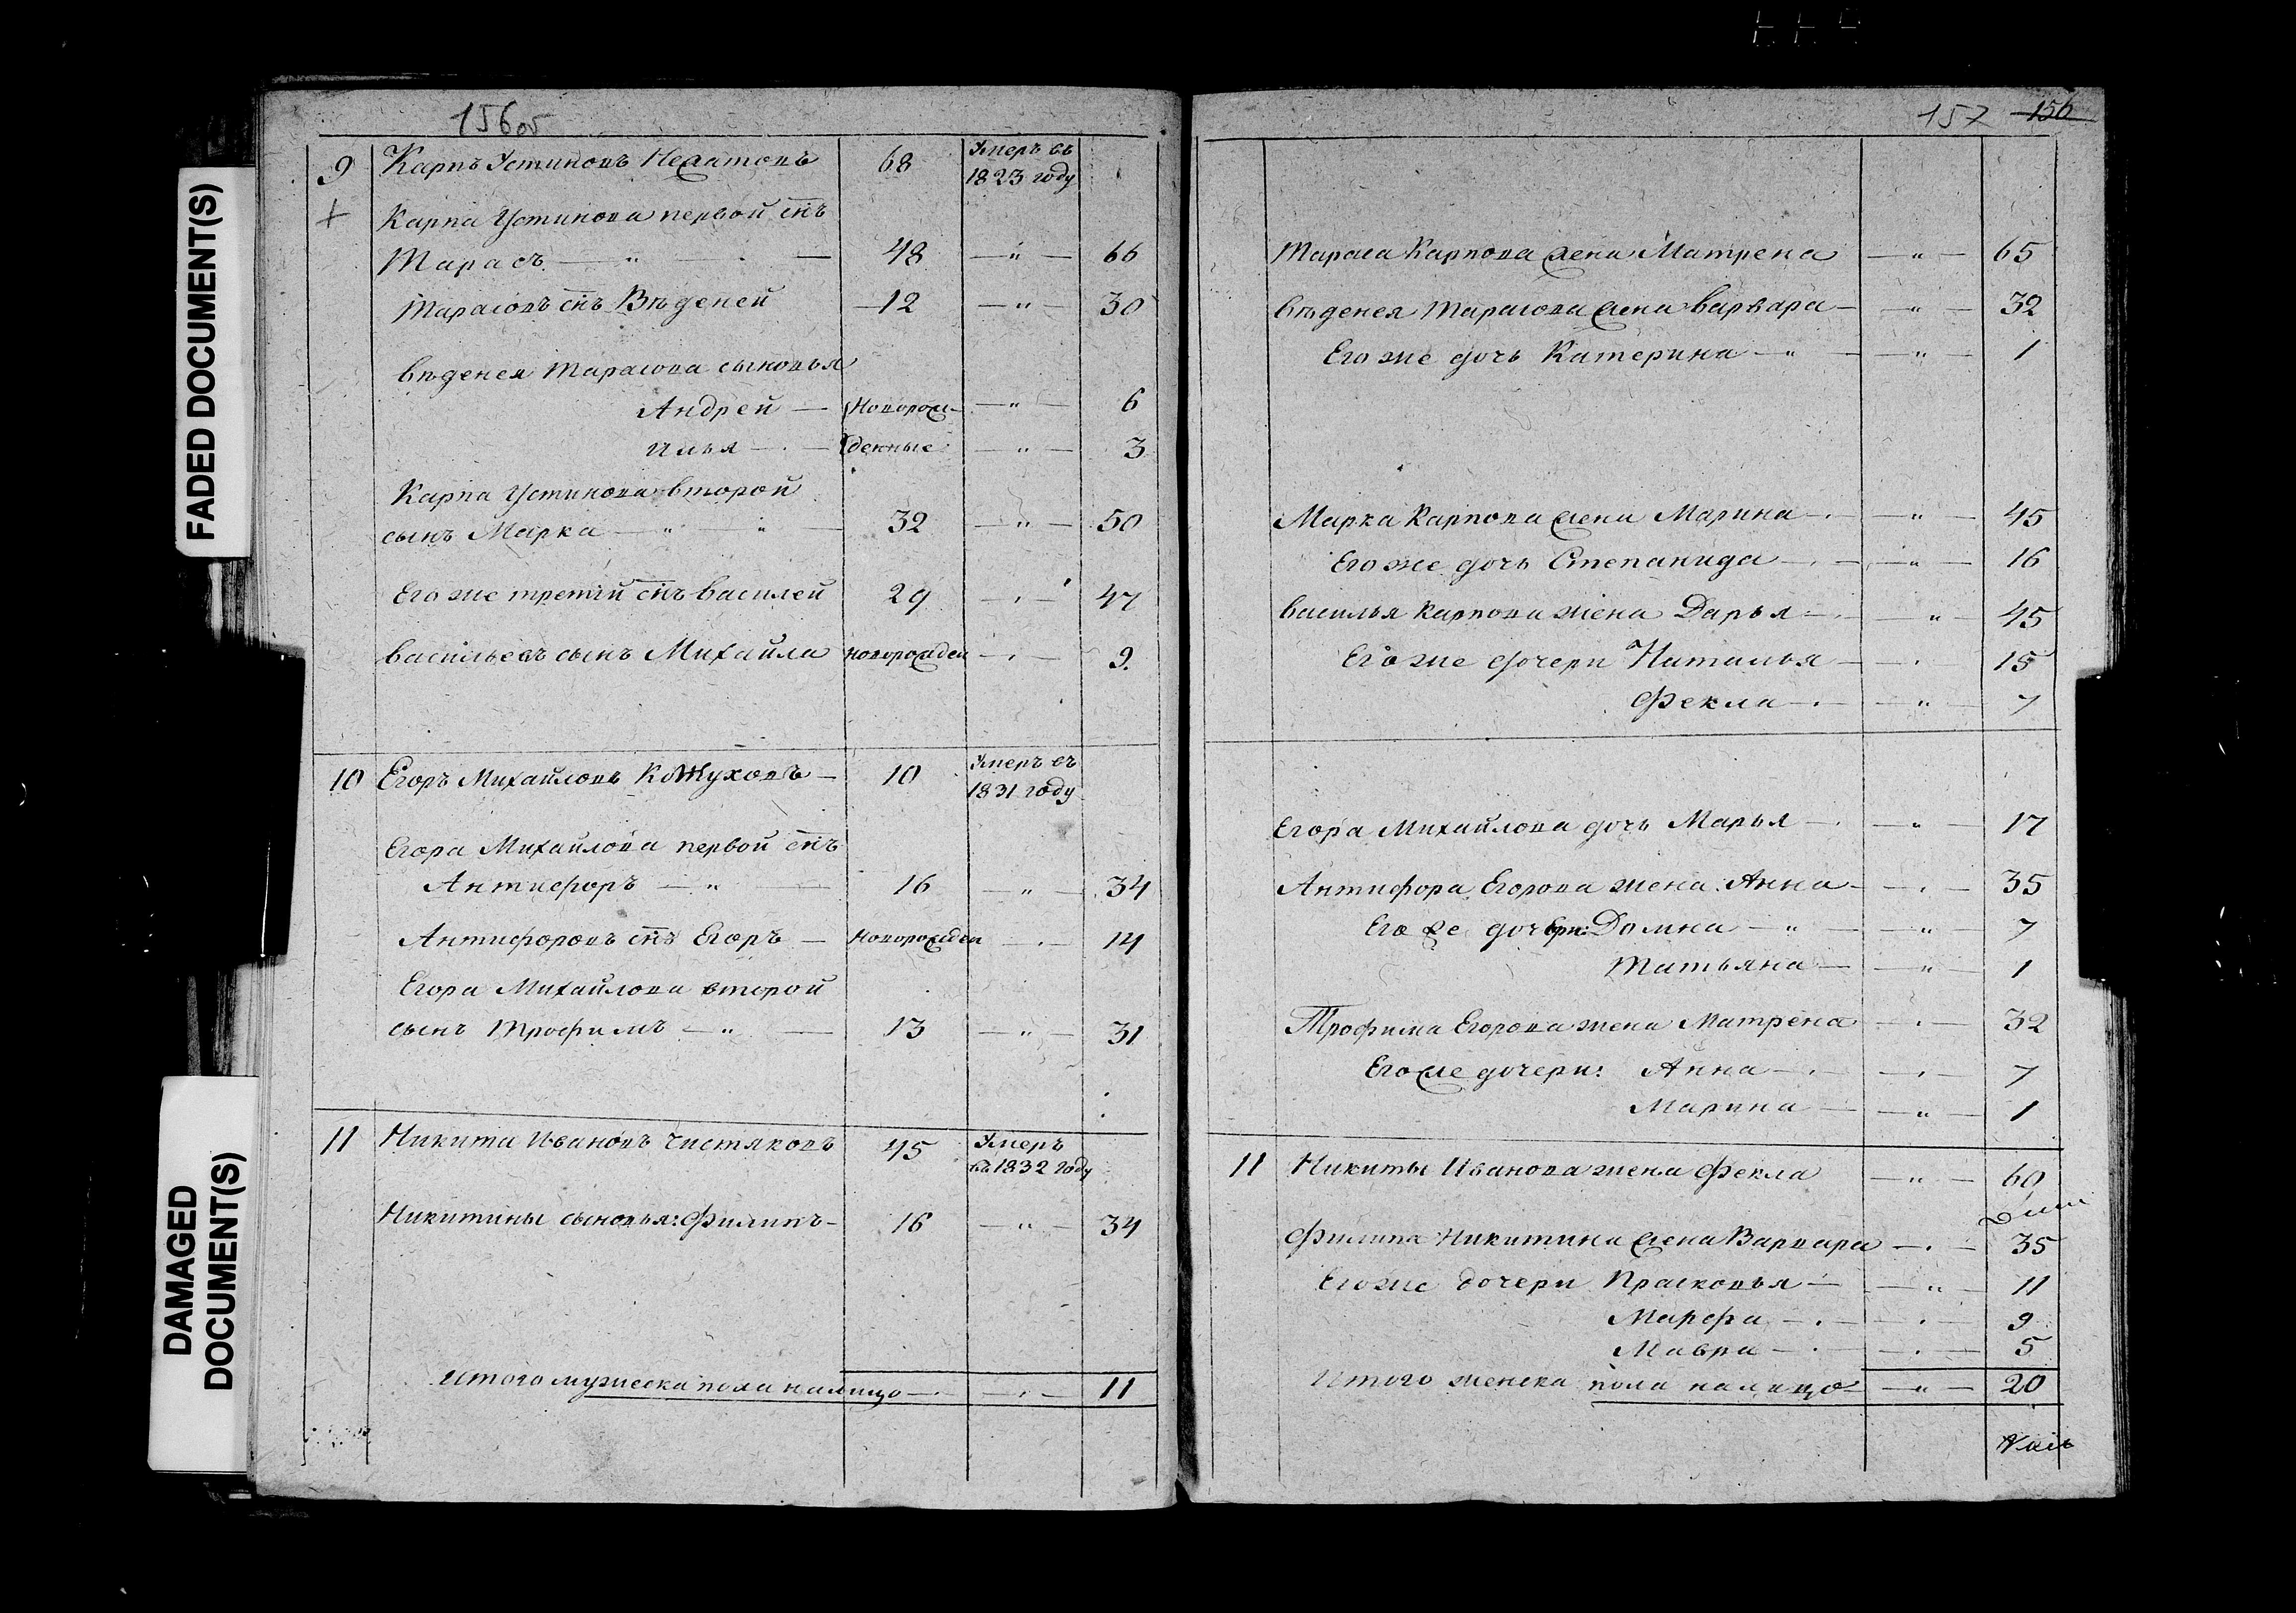 FADED DOCUMENT(S)
DAMAGED
DOCUMENT(S)
156об
9 Карпъ Устиновъ 68 Умеръ въ
1823 году
Карпа Устинова первой снъ
Тарасъ — " — 48 — " — 66
Тарасовъ снъ Вѣденей 12 — " — 30
Вѣденея Тарасова сыновья
Андрей — Новорож- — " — 6
Илья — денные — " — 3
Карпа Устинова второй
сынъ Марка — " — 32 — " — 50
Его же третій снъ Василей 29 — " — 47
Васильевъ сынъ Михайла новорожден — " — 9
10 Егоръ Михайловъ Кожуховъ — 10 Умеръ въ
1831 году
Егора Михайлова первой снъ
Антифоръ — " — 16 — " — 34
Антифоровъ снъ Егоръ — новорожден — " — 14
Егора Михайлова второй
сынъ Трофимъ — " — 13 — " — 31
11 Никита Ивановъ Чистяковъ 45 Умеръ
въ 1832 году
Никитины сыновья: Филипъ — 16 — " — 34
Итого мужеска пола налицо — " — 11
157 156
Тараса Карпова жена Матрена — " — 65
Вѣденея Тарасова жена Варвара — " — 32
Его же дочь Катерина — " — 1
Марка Карпова жена Марина — " — 45
Его же дочь Степанида — " — 16
Василья Карпова жена Дарья — " — 45
Его же дочери Наталья — " — 15
Фекла — " — 7
Егора Михайлова дочь Марья — " — 17
Антифора Егорова жена: Анна — " — 35
Его же дочери: Домна — " — 7
Татьяна — " — 1
Трофима Егорова жена Матрена — " — 32
Его же дочери: Анна — " — 7
Марина — " — 1
11 Никиты Иванова жена Фекла — " — 60
Филипа Никитина жена Варвара — " — 35
Его же дочери Прасковья — " — 11
Марфа — " — 9
Мавра — " — 5
Итого женска пола налицо — " — 20